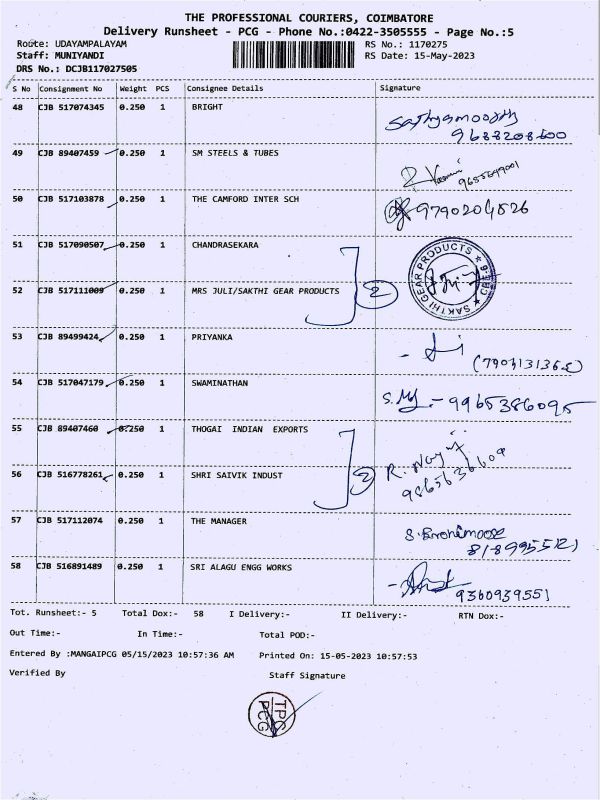 THE PROFESSIONAL COURIERS, COIMBATORE
Delivery Runsheet - PCG - Phone No.:0422-3505555 - Page No.:5
Route: UDAYAMPALAYAM RS No.: 1170275
Staff: MUNIYANDI RS Date: 15-May-2023
DRS No.: DCJB117027505
S No Consignment No Weight PCS Consignee Details Signature
48 CJB 517074345 0.250 1 BRIGHT
Sathyamoorthy
9688208600
49 CJB 89407459 0.250 1 SM STEELS & TUBES
50 CJB 517103878 0.250 1 THE CAMFORD INTER SCH
9790204826
51 CJB 517090507 0.250 1 CHANDRASEKARA
52 CJB 517111009 0.250 1 MRS JULI/SAKTHI GEAR PRODUCTS
2
SAKTHI GEAR PRODUCTS
53 CJB 89499424 0.250 1 PRIYANKA
54 CJB 517047179 0.250 1 SWAMINATHAN
9965386095
55 CJB 89407460 0.250 1 THOGAI INDIAN EXPORTS
56 CJB 516778261 0.250 1 SHRI SAIVIK INDUST
2
9865636609
57 CJB 517112074 0.250 1 THE MANAGER
58 CJB 516891489 0.250 1 SRI ALAGU ENGG WORKS
9360939551
Tot. Runsheet:- 5 Total Dox:- 58 I Delivery:- II Delivery:- RTN Dox:-
Out Time:- In Time:- Total POD:-
Entered By :MANGAIPCG 05/15/2023 10:57:36 AM Printed On: 15-05-2023 10:57:53
Verified By Staff Signature
TPC
PCG